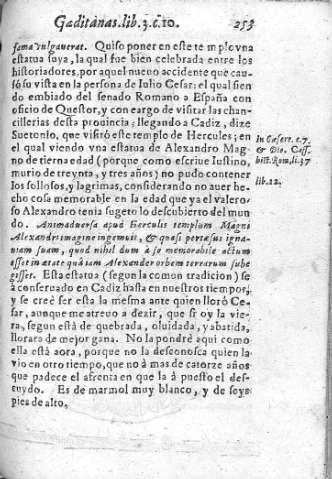 Gaditanas. lib. 3. c. 10. 253
fama vulgauerat. Quiso poner en este templo vna
estatua suya, la qual fue bien celebrada entre los
historiadores, por aquel nueuo accidente que cau-
só su vista en la persona de Iulio Cesar: el qual sien
do embiado del senado Romano a España con
oficio de Questor, y con cargo de visitar las chan-
cillerias desta prouincia; llegando a Cadiz, dize
Suetonio, que visitó este templo de Hercules; en
el qual viendo vna estatua de Alexandro Mag-
no de tierna edad (porque como escriue Iustino,
murio de treynta, y tres años) no pudo contener
los sollosos, y lagrimas, considerando no auer he-
cho cosa memorable en la edad que ya el valero-
so Alexandro tenia sugeto lo descubierto del mun
do. Animaduersa apud Herculis templum Magni
Alexandri imagine ingemuit, & quasi pertæsus igna-
uiam suam, quod nihil dum à se memorabile actum
esset in ætate qua iam Alexander orbem terrarum sube
gisset. Esta estatua (segun la comun tradicion) se
à conseruado en Cadiz hasta en nuestros tiempos,
y se cree ser esta la mesma ante quien lloró Ce-
sar, aunque me atreuo a dezir, que si oy la vie-
ra, segun està de quebrada, oluidada, y abatida,
llorara de mejor gana. No la pondrè aqui como
ella està aora, porque no la desconosca quien la
vio en otro tiempo, que no à mas de catorze años
que padece el afrenta en que la à puesto el des-
cuydo. Es de marmol muy blanco, y de seys
pies de alto,
In Cæsare. c. 7.
& Dio. Cass.
hist. Rom. li. 37
lib. 12.